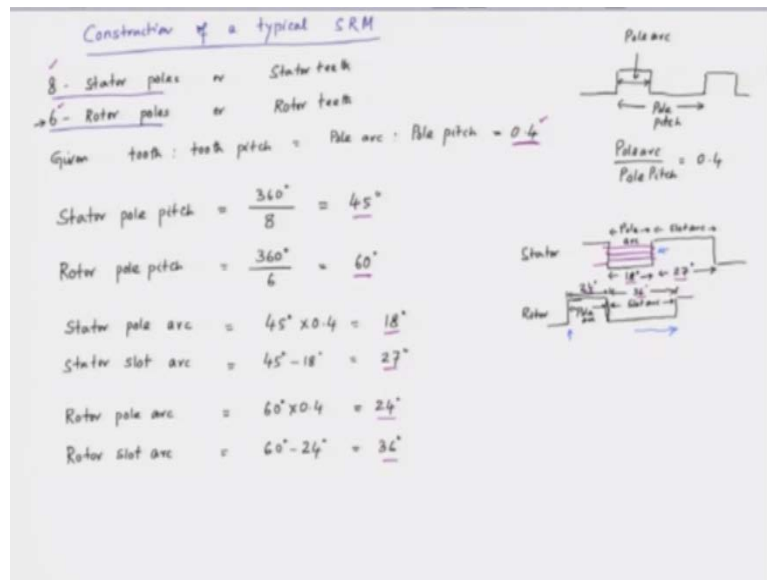 Construction of a typical SRM
8 - Stator poles or Stator teeth
→6 - Rotor poles or Rotor teeth
Given tooth : tooth pitch = Pole arc : Pole pitch = 0.4
Stator pole pitch = 360° / 8 = 45°
Rotor pole pitch = 360° / 6 = 60°
Stator pole arc = 45° × 0.4 = 18°
Stator slot arc = 45° - 18° = 27°
Rotor pole arc = 60° × 0.4 = 24°
Rotor slot arc = 60° - 24° = 36°
Pole arc
Pole
pitch
Pole arc / Pole Pitch = 0.4
Pole arc
Slot arc
Stator
18° 27°
36°
Rotor
Pole arc
Slot arc